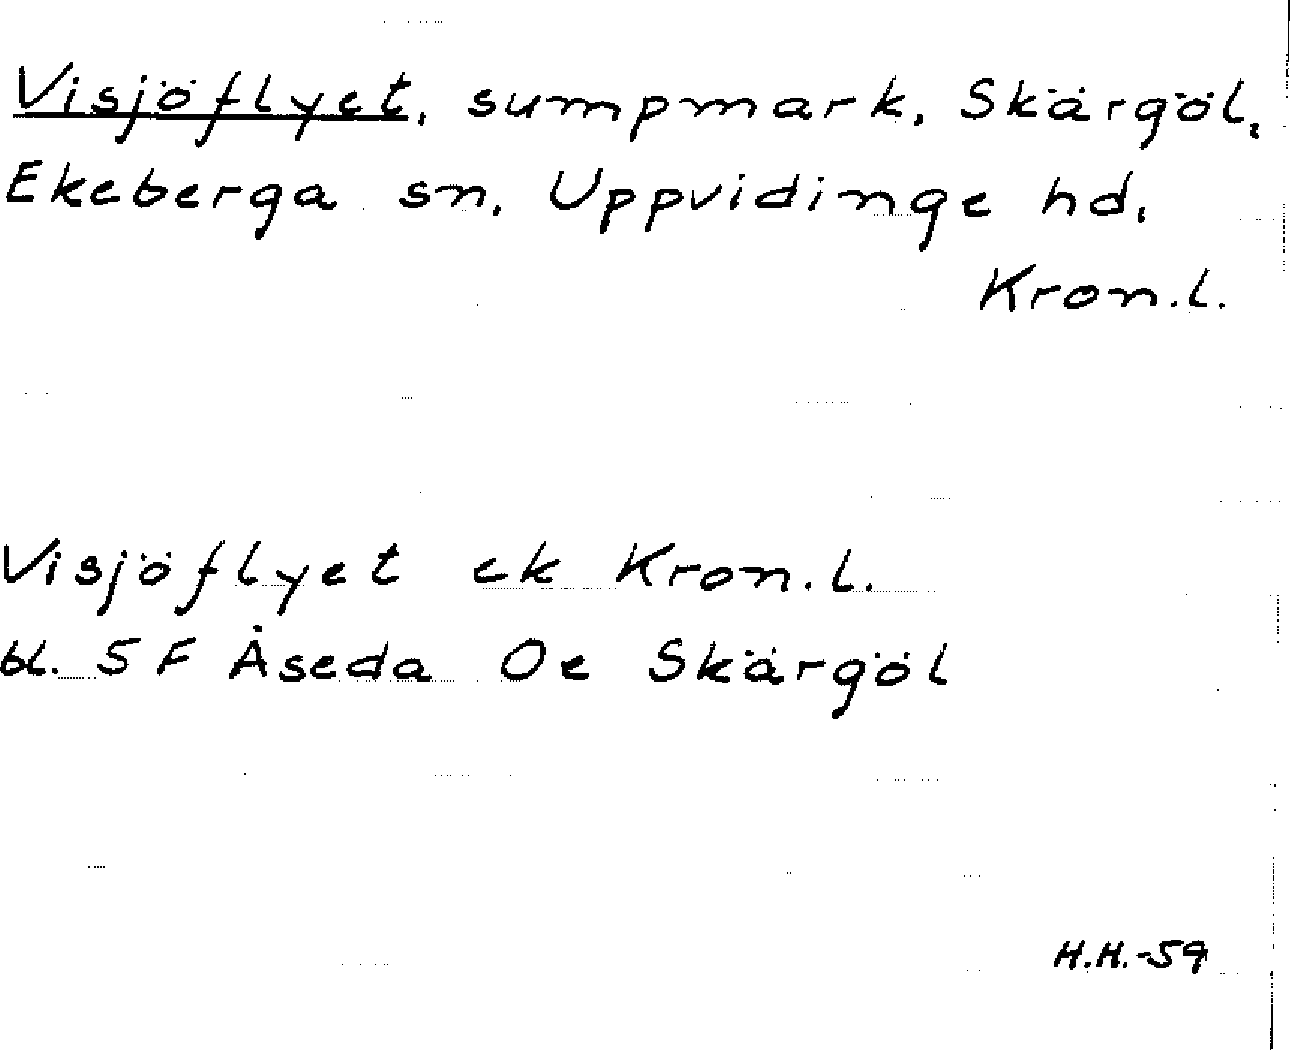 Visjöflyet, sumpmark, Skärgöl,
Ekeberga sn, Uppvidinge hd,
Kron.l.
Visjöflyet ek Kron.l.
bl. 5 F Åseda Oe Skärgöl
H.H.-59